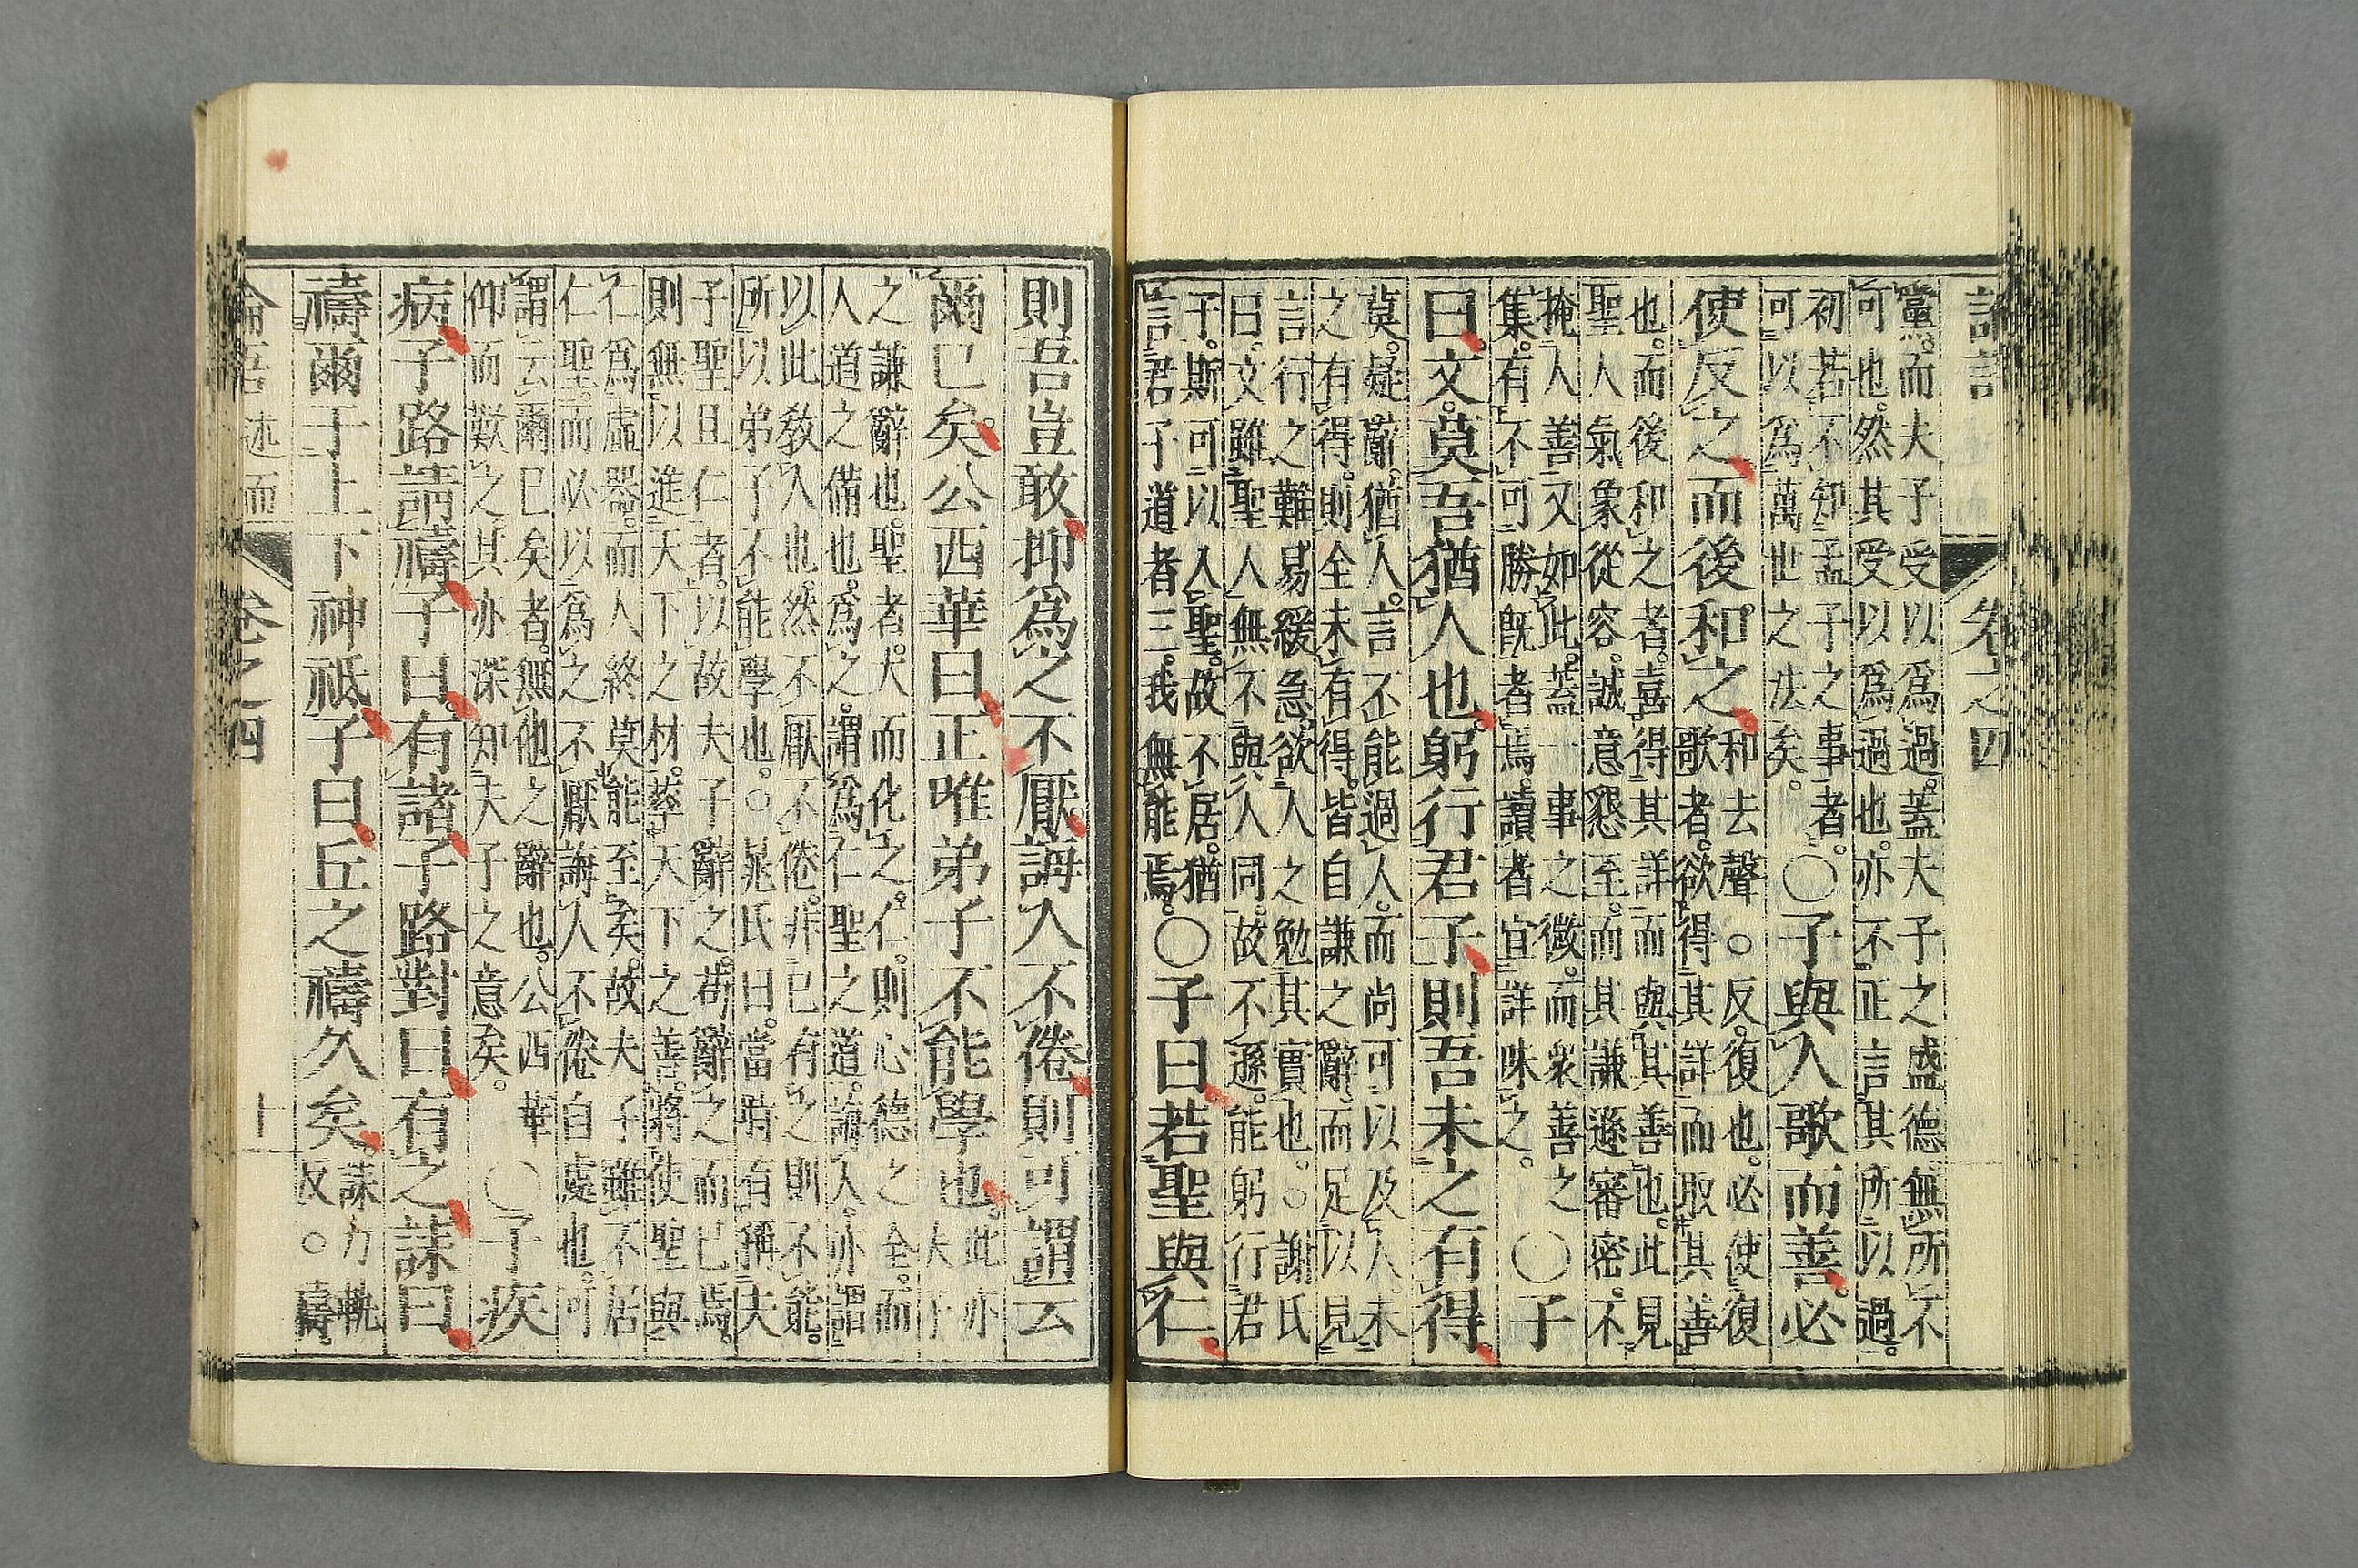 論語　卷之四
黨。而夫子受以爲過。蓋夫子之盛德無所不
可也。然其受以爲過也。亦不正言其所以過。
初若不知孟子之事者。
可以爲萬世之法矣。
○子與人歌而善。必
使反之而後和之
和去聲○反。復也。必使復
歌者。欲得其詳而取其善
也。而後和之者。喜得其詳而與其善也。此見
聖人氣象從容。誠意懇至。而其謙遜審密。不
掩人善又如此。蓋一事之微。而衆善之
集。有不可勝旣者焉。讀者宜詳味之。
○子
曰。文。莫吾猶人也。躬行君子。則吾未之有得
莫。疑辭。猶人。言不能過人。而尚可以及人。未
之有得。則全未有得。皆自謙之辭。而足以見
言行之難易緩急。欲人之勉其實也。○謝氏
曰。文雖聖人無不與人同。故不遜。能躬行君
子。斯可以入聖。故不居。猶
言君子道者三。我無能焉。
○子曰。若聖與仁。
則吾豈敢抑爲之不厭。誨人不倦。則可謂云
爾已矣。公西華曰。正唯弟子不能學也。
此亦
夫子
之謙辭也。聖者。大而化之。仁。則心德之全。而
人道之備也。爲之。謂爲仁聖之道。誨人。亦謂
以此敎人也。然不厭不倦。非已有之則不能。
所以弟子不能學也。○晁氏曰。當時有稱夫
子聖且仁者。以故夫子辭之。苟辭之而已焉。
則無以進天下之材。率天下之善。將使聖與
仁爲虛器。而人終莫能至矣。故夫子雖不居
仁聖。而必以爲之不厭誨人不倦自處也。可
謂云爾已矣者。無他之辭也。公西華
仰而歎之。其亦深知夫子之意矣。
○子疾
病子路請禱子曰。有諸子路對曰。有之誄曰。
禱爾于上下神祇子曰。丘之禱久矣。
誄力軌
反。○禱。
論吾　述而　卷之四